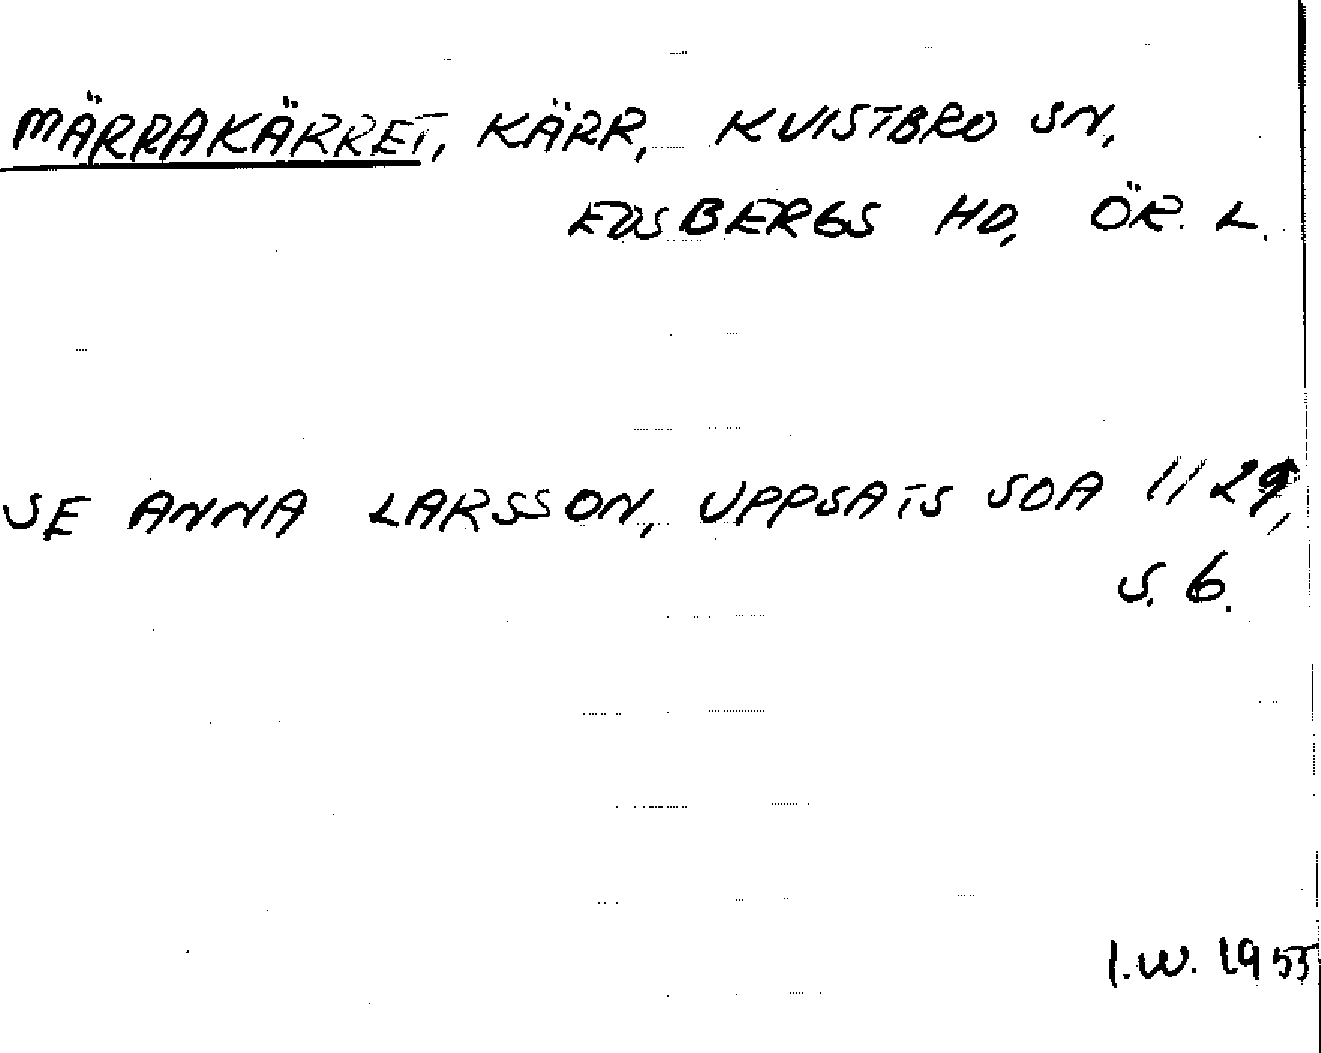 MÄRRAKÄRRET, KÄRR, KVISTBRO SN,
EDSBERGS HD, ÖR. L.
SE ANNA LARSSON, UPPSATS SOA 1129,
S. 6.
I.W. 1955